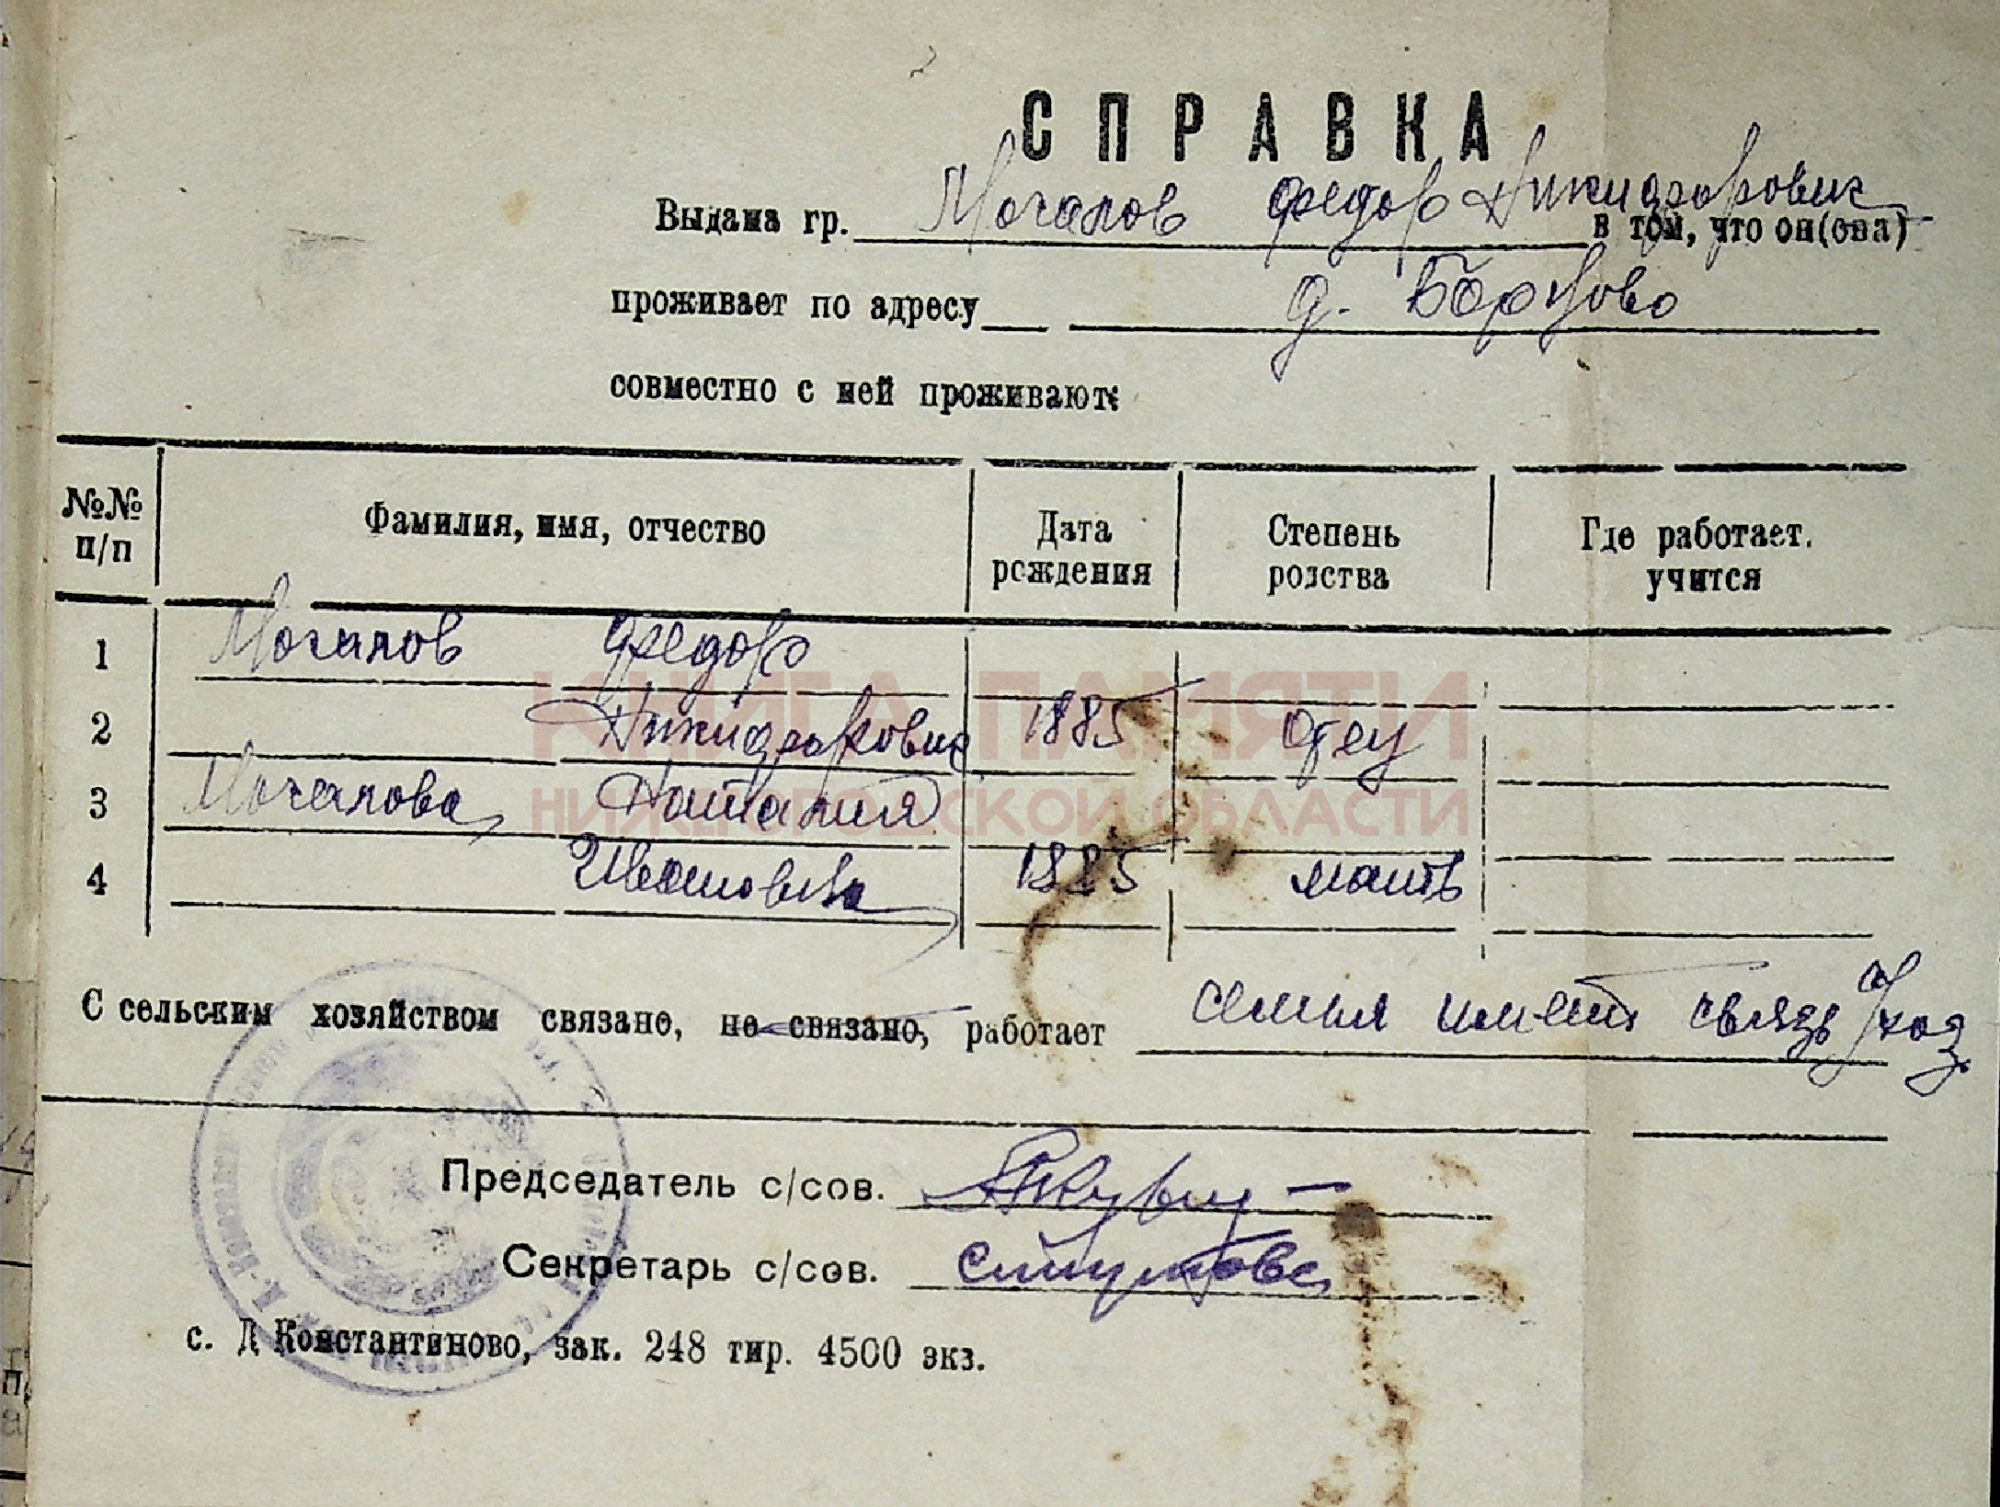 СПРАВКА
Выдана гр. Мочалов Федор Никидрорович в том, что он(она)
проживает по адресу д. Борцово
совместно с ней проживают:
№№ п/п Фамилия, имя, отчество Дата рождения Степень родства Где работает. учится
1 Мочалов Федор
2 Никидрорович 1885 Отец
3 Мочалова Наталия
4 Ивановна 1885 мать
КНИГА ПАМЯТИ
НИЖЕГОРОДСКОЙ ОБЛАСТИ
С сельским хозяйством связано, не связано, работает семья имеет связь с/хоз
Председатель с/сов.
Секретарь с/сов.
с. Д Константиново, зак. 248 тир. 4500 экз.